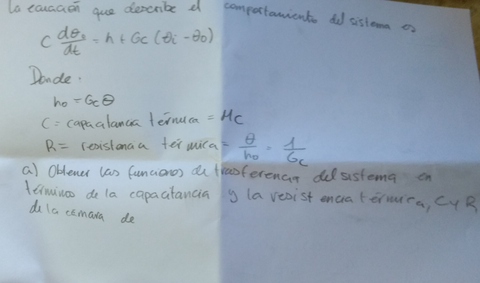 La ecuación que describe el comportamiento del sistema es
C dθo/dt = h + Gc (θi - θo)
Donde.
ho = Gc θ
C = capacitancia térmica = Mc
R = resistencia térmica = θ/ho = 1/Gc
a) Obtener las funciones de trasferencia del sistema en
términos de la capacitancia y la resistencia térmica, C y R
de la cámara de